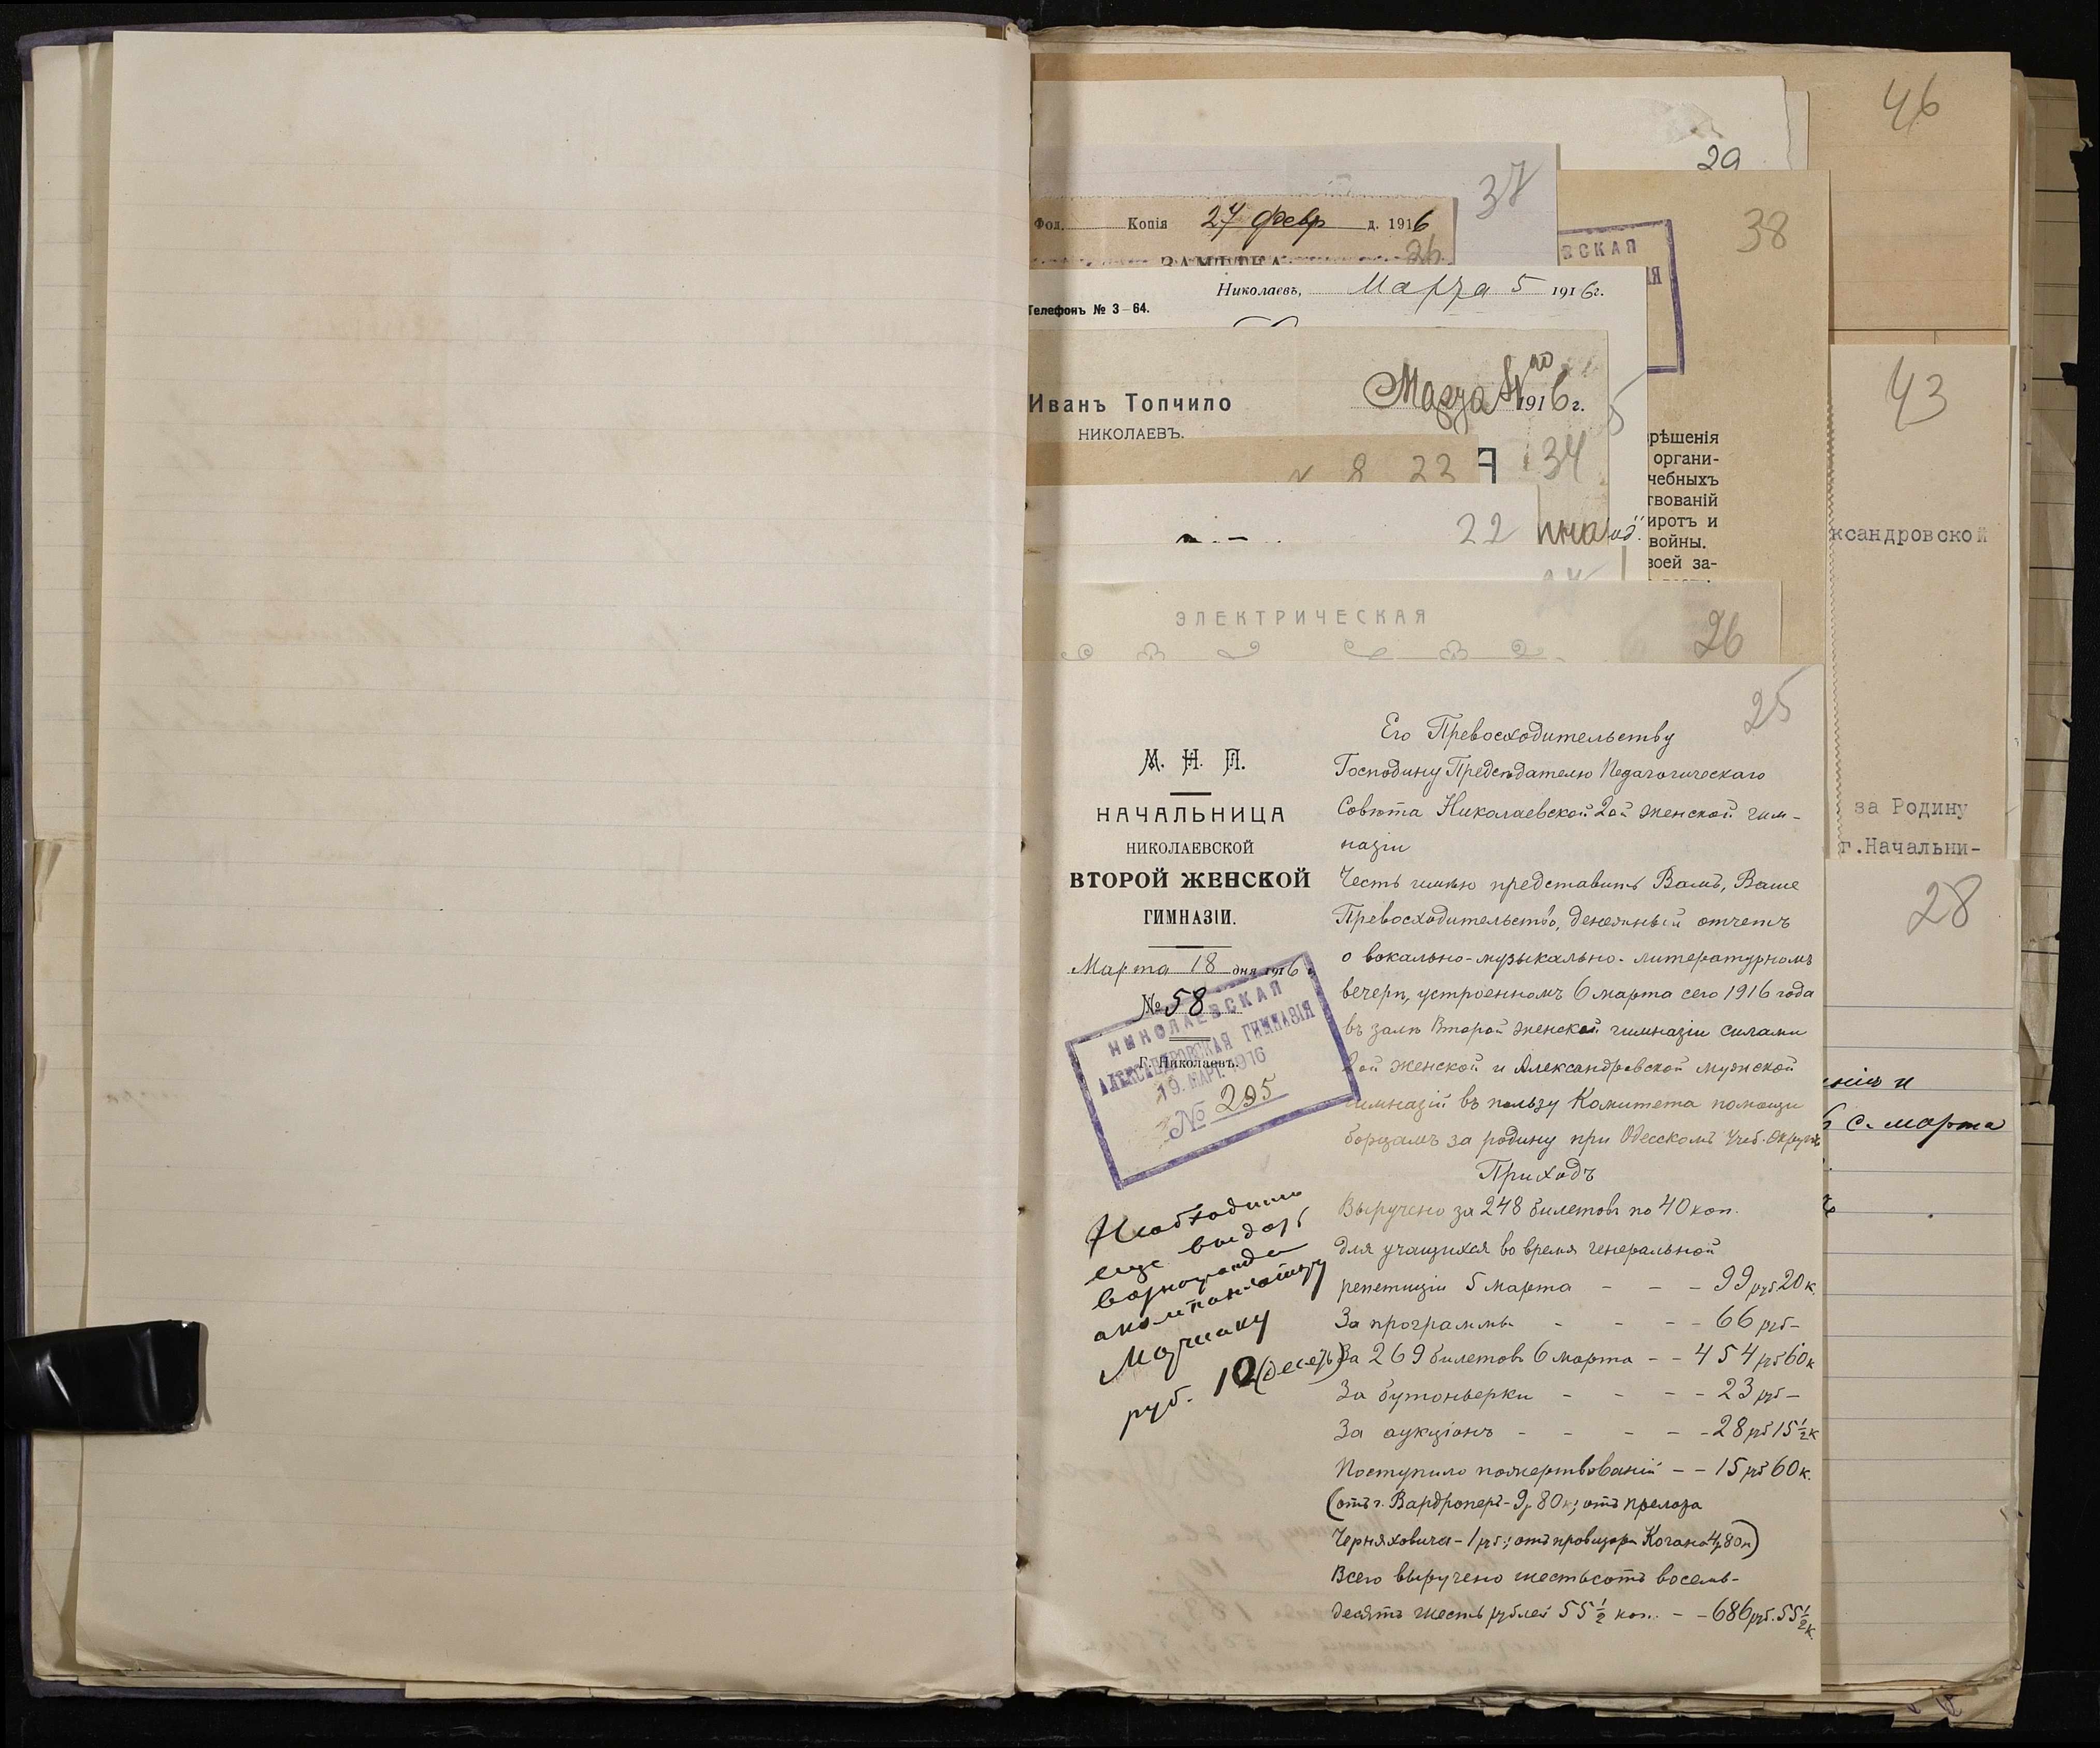 46
29
37
38
Фол. Копія 24 февр д. 1916
26
ЗАМѢТКА
ВСКАЯ
Николаевъ, Марта 5 1916 г.
Телефонъ № 3-64.
Марта 4го 1916 г.
Иванъ Топчило
НИКОЛАЕВЪ.
43
34
рѣшенія
органи-
чебныхъ
твованій
иротъ и
войны.
воей за-
8 23
22
ксандровской
ЭЛЕКТРИЧЕСКАЯ
26
25
за Родину
г.Начальни-
28
М. Н. П.
НАЧАЛЬНИЦА
НИКОЛАЕВСКОЙ
ВТОРОЙ ЖЕНСКОЙ
ГИМНАЗІИ.
Марта 18 дня 1916 г.
№ 58
Г. Николаевъ.
НИКОЛАЕВСКАЯ
АЛЕКСАНДРОВСКАЯ ГИМНАЗІЯ
19. МАРТ. 1916
№ 295
Необходимо
еще выдать
вознагражд
аккомпаніатору
руб. 10 (десять)
Его Превосходительству
Господину Предсѣдателю Педагогическаго
Совѣта Николаевской 2ой женской гим-
назіи
Честь имѣю представить Вамъ, Ваше
Превосходительство, денежный отчетъ
о вокально-музыкально-литературномъ
вечерѣ, устроенномъ 6 марта сего 1916 года
въ залѣ Второй женской гимназіи силами
2ой женской и Александровской мужской
гимназій въ пользу Комитета помощи
борцамъ за родину при Одесскомъ Учеб. Округѣ
Приходъ
Выручено за 248 билетовъ по 40 коп.
для учащихся во время генеральной
репетиціи 5 марта - - - 99 руб 20 к.
За программы - - - - 66 руб -
За 269 билетовъ 6 марта - - 454 руб 60 к
За бутоньерки - - - - 23 руб -
За аукціонъ - - - - - 28 руб 15 ½ к
Поступило пожертвованій - - 15 руб 60 к.
(отъ г. Вардроперъ - 9 р 80 к; отъ
Черняховича - 1 руб; отъ провизора Когана 4 р 80 к)
Всего выручено шестьсотъ восемь-
десятъ шесть рублей 55 ½ коп. - - 686 руб. 55 ½ к.
с. марта